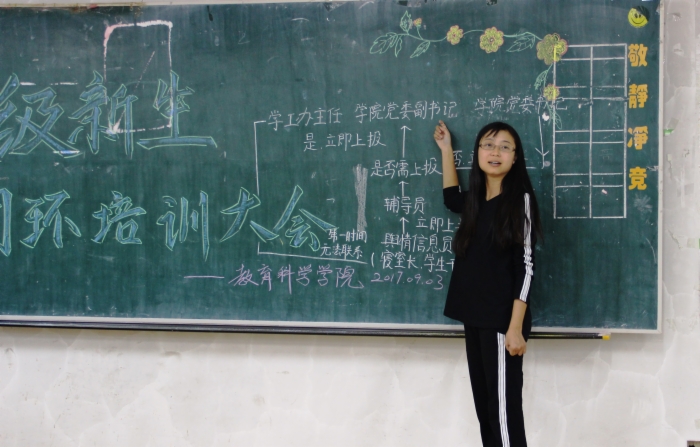 级新生
环培训大会
——教育科学学院 2017.09.03
学工办主任 学院党委副书记 学院党委书记
是 立即上报
是否需上报 否
辅导员
立即上
第一时间
无法联系
舆情信息员
(寝室长,学生
敬
静
净
竞